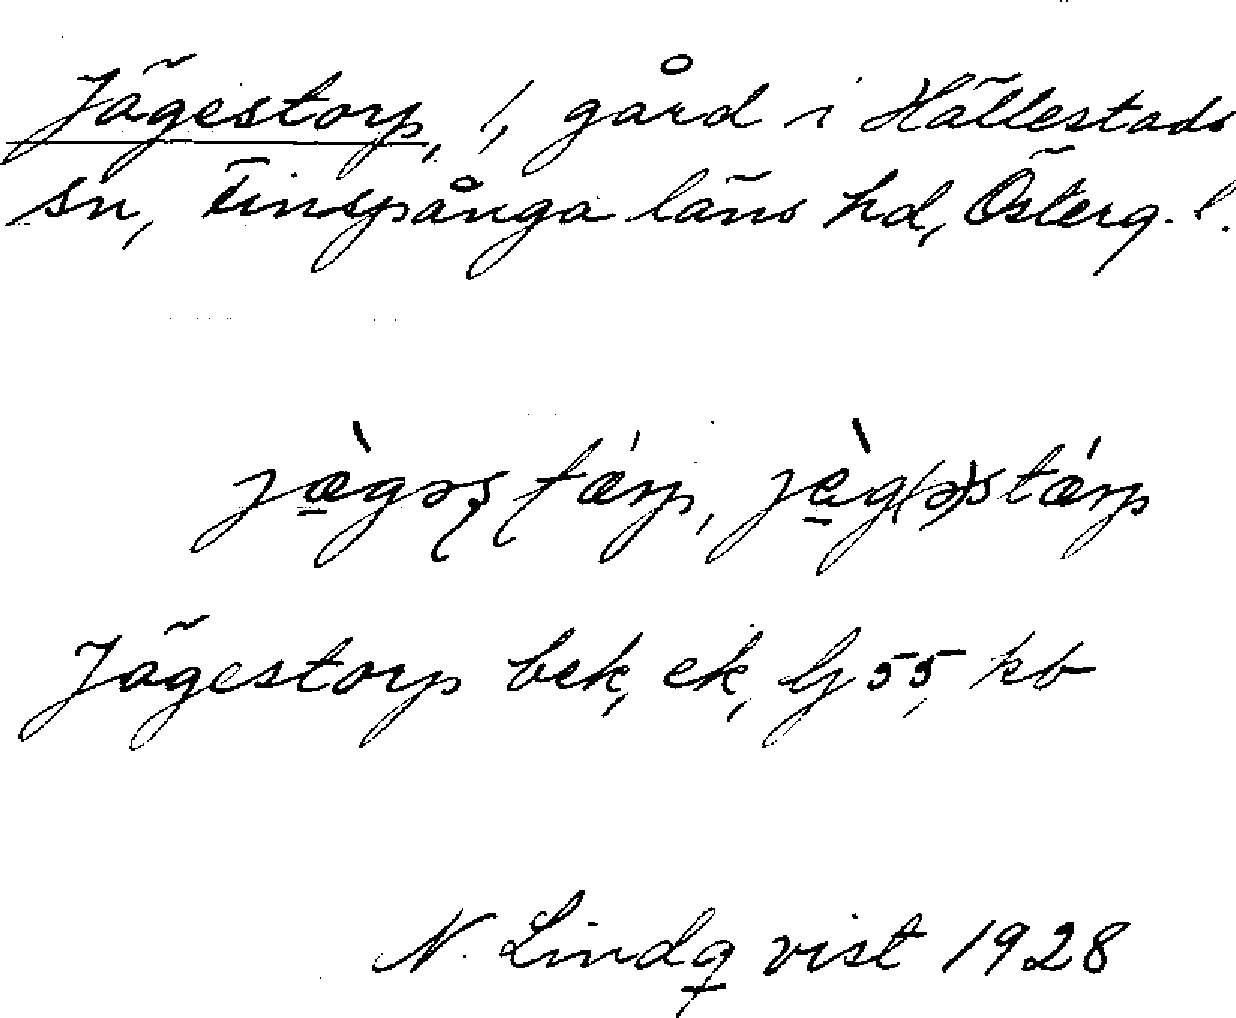 Jägestorp, !, gård i Hällestads
sn, Finspånga läns hd, Österg. l.
jæ̠̀gəstærp, jæ̠̀g(ə)stærp
Jägestorp bek, ek, Gj 55, kb
N. Lindqvist 1928